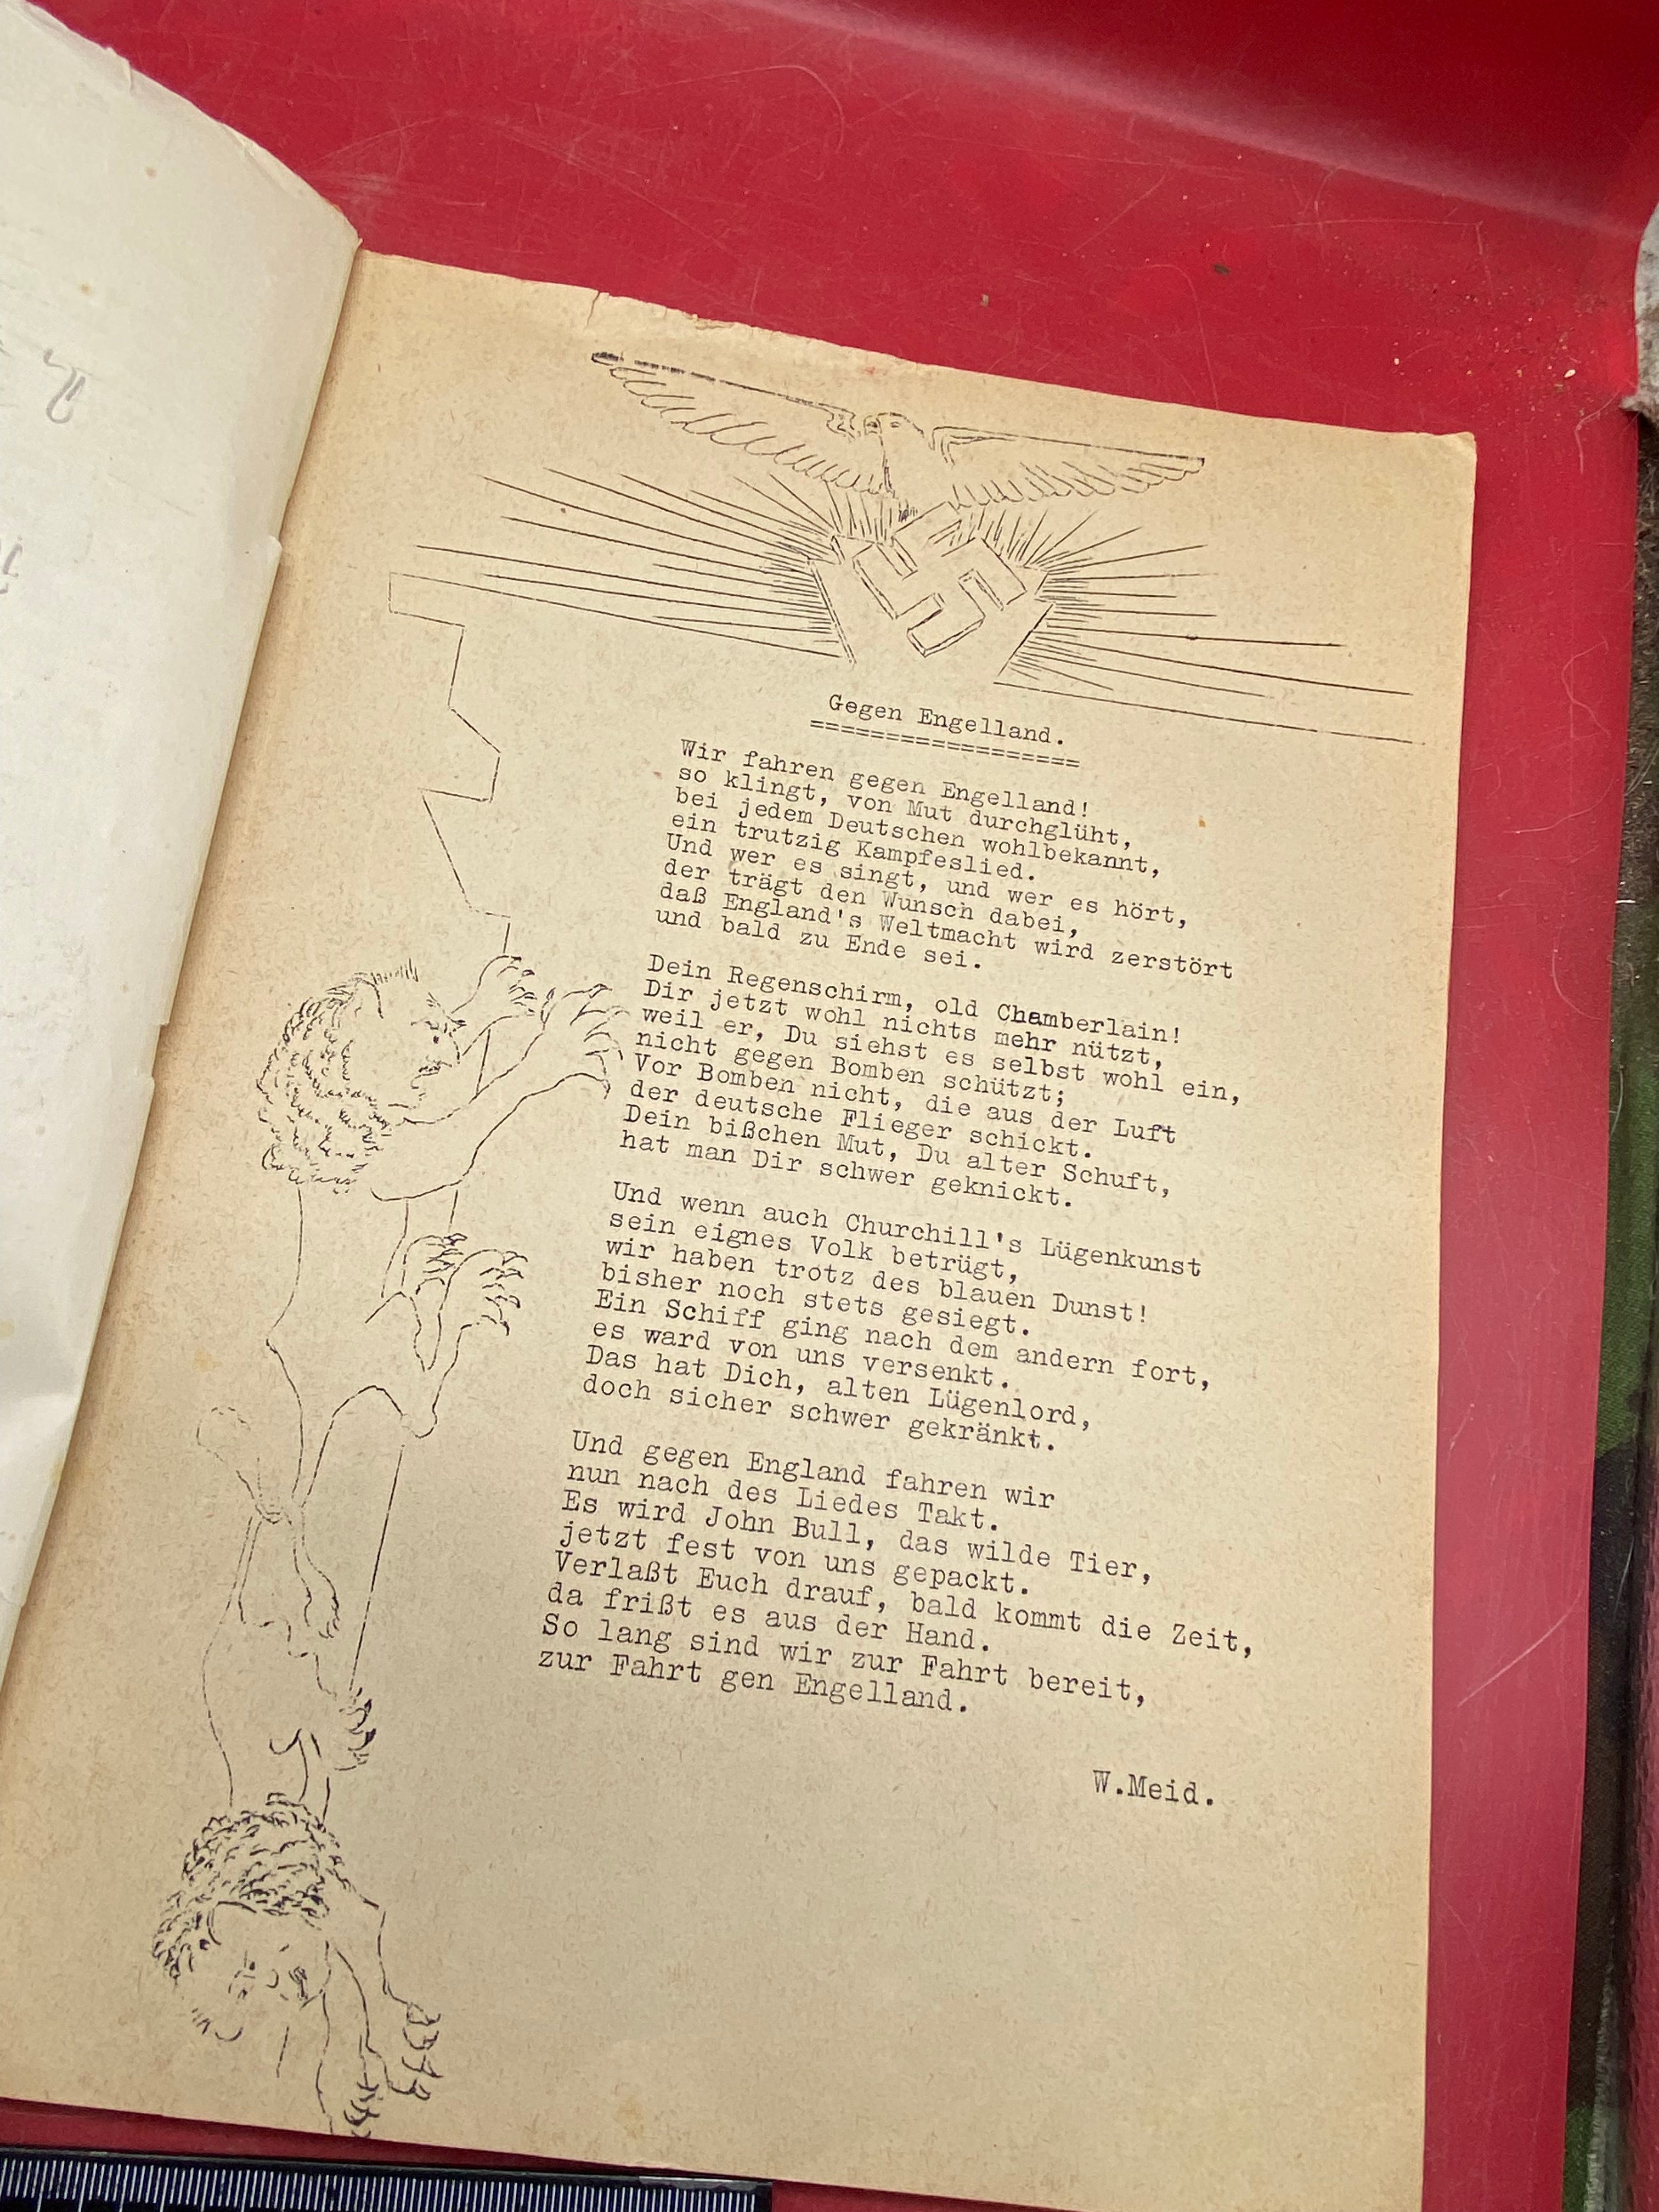 Gegen Engelland.
=================
Wir fahren gegen Engelland!
so klingt, von Mut durchglüht,
bei jedem Deutschen wohlbekannt,
ein trutzig Kampfeslied.
Und wer es singt, und wer es hört,
der trägt den Wunsch dabei,
daß England's Weltmacht wird zerstört
und bald zu Ende sei.
Dein Regenschirm, old Chamberlain!
Dir jetzt wohl nichts mehr nützt,
weil er, Du siehst es selbst wohl ein,
nicht gegen Bomben schützt;
Vor Bomben nicht, die aus der Luft
der deutsche Flieger schickt.
Dein bißchen Mut, Du alter Schuft,
hat man Dir schwer geknickt.
Und wenn auch Churchill's Lügenkunst
sein eignes Volk betrügt,
wir haben trotz des blauen Dunst!
bisher noch stets gesiegt.
Ein Schiff ging nach dem andern fort,
es ward von uns versenkt.
Das hat Dich, alten Lügenlord,
doch sicher schwer gekränkt.
Und gegen England fahren wir
nun nach des Liedes Takt.
Es wird John Bull, das wilde Tier,
jetzt fest von uns gepackt.
Verlaßt Euch drauf, bald kommt die Zeit,
da frißt es aus der Hand.
So lang sind wir zur Fahrt bereit,
zur Fahrt gen Engelland.
W.Meid.